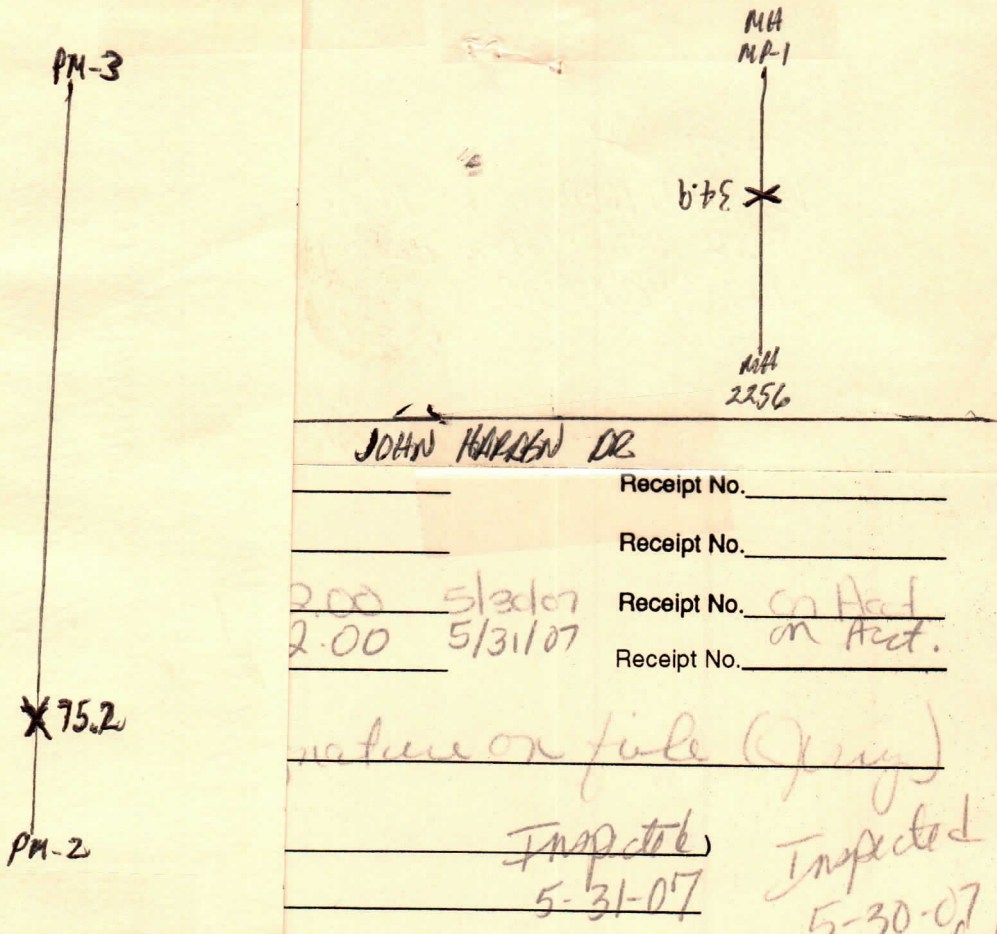 PM-3
X 75.2
PM-2
MH
MP-1
34.9 X
MH
2256
JOHN HARREN DR
Receipt No.
Receipt No.
2.00 5/30/07 Receipt No. on Acct
2.00 5/31/07 on Acct.
Receipt No.
nature on file
Inspected )
5-31-07
Inspected
5-30-07